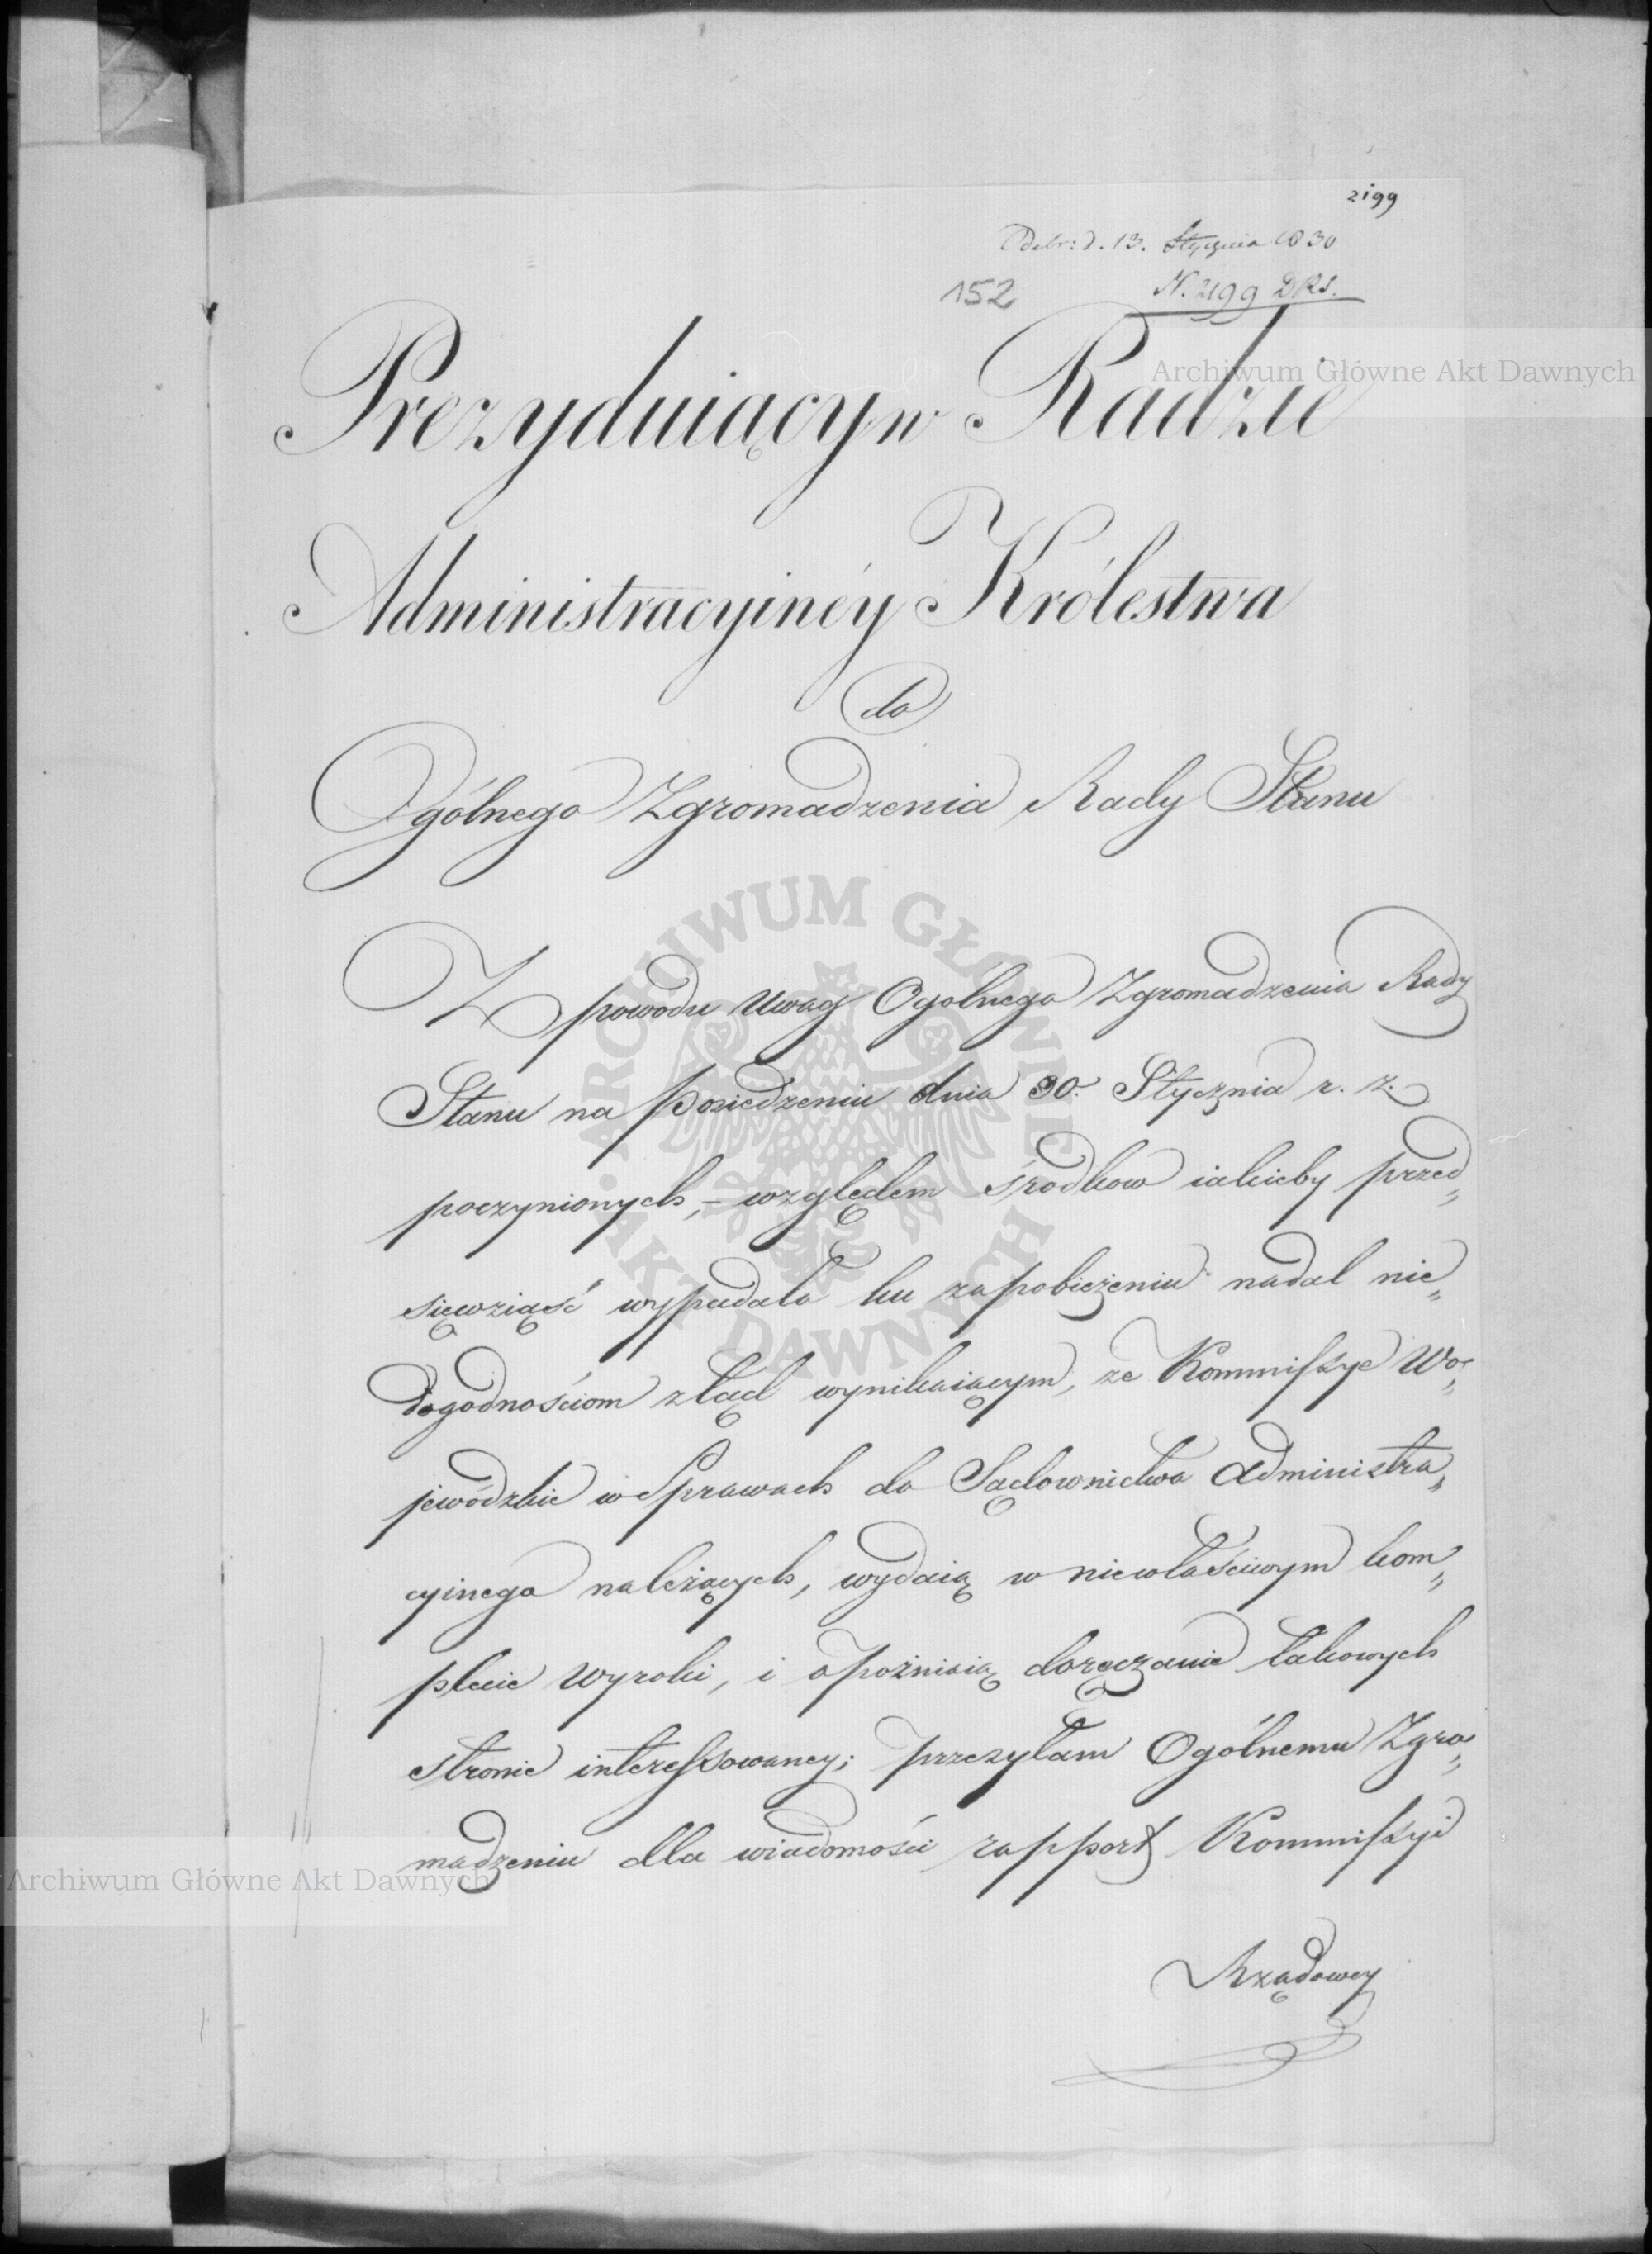 2199
Odebr: d. 13. Stycznia 1830
152
N. 2199 DRS.
Prezyduiący w Radzie
Administracyinéy Królestwa
do
Ogólnego Zgromadzenia Rady Stanu
Z powodu Uwag Ogólnego Zgromadzenia Rady
Stanu na posiedzeniu dnia 30. Stycznia r. z.
poczynionych, – względem środkow iakieby przed„
sięwziąść wypadało ku zapobieżeniu nadal nie„
dogodnościom ztąd wynikaiącym, że Kommissye Wo„
jewódzkie w Sprawach do Sądownictwa Administra„
cyinego należących, wydaią w niewłaściwym kom„
plecie wyroki, i opoźniaią doręczanie takowych
stronie interessowaney; przesyłam Ogólnemu Zgro„
madzeniu dla wiadomości rapport Kommissyi
Rządowey
Archiwum Główne Akt Dawnych
ARCHIWUM GŁÓWNE • AKT DAWNYCH •
Archiwum Główne Akt Dawnych